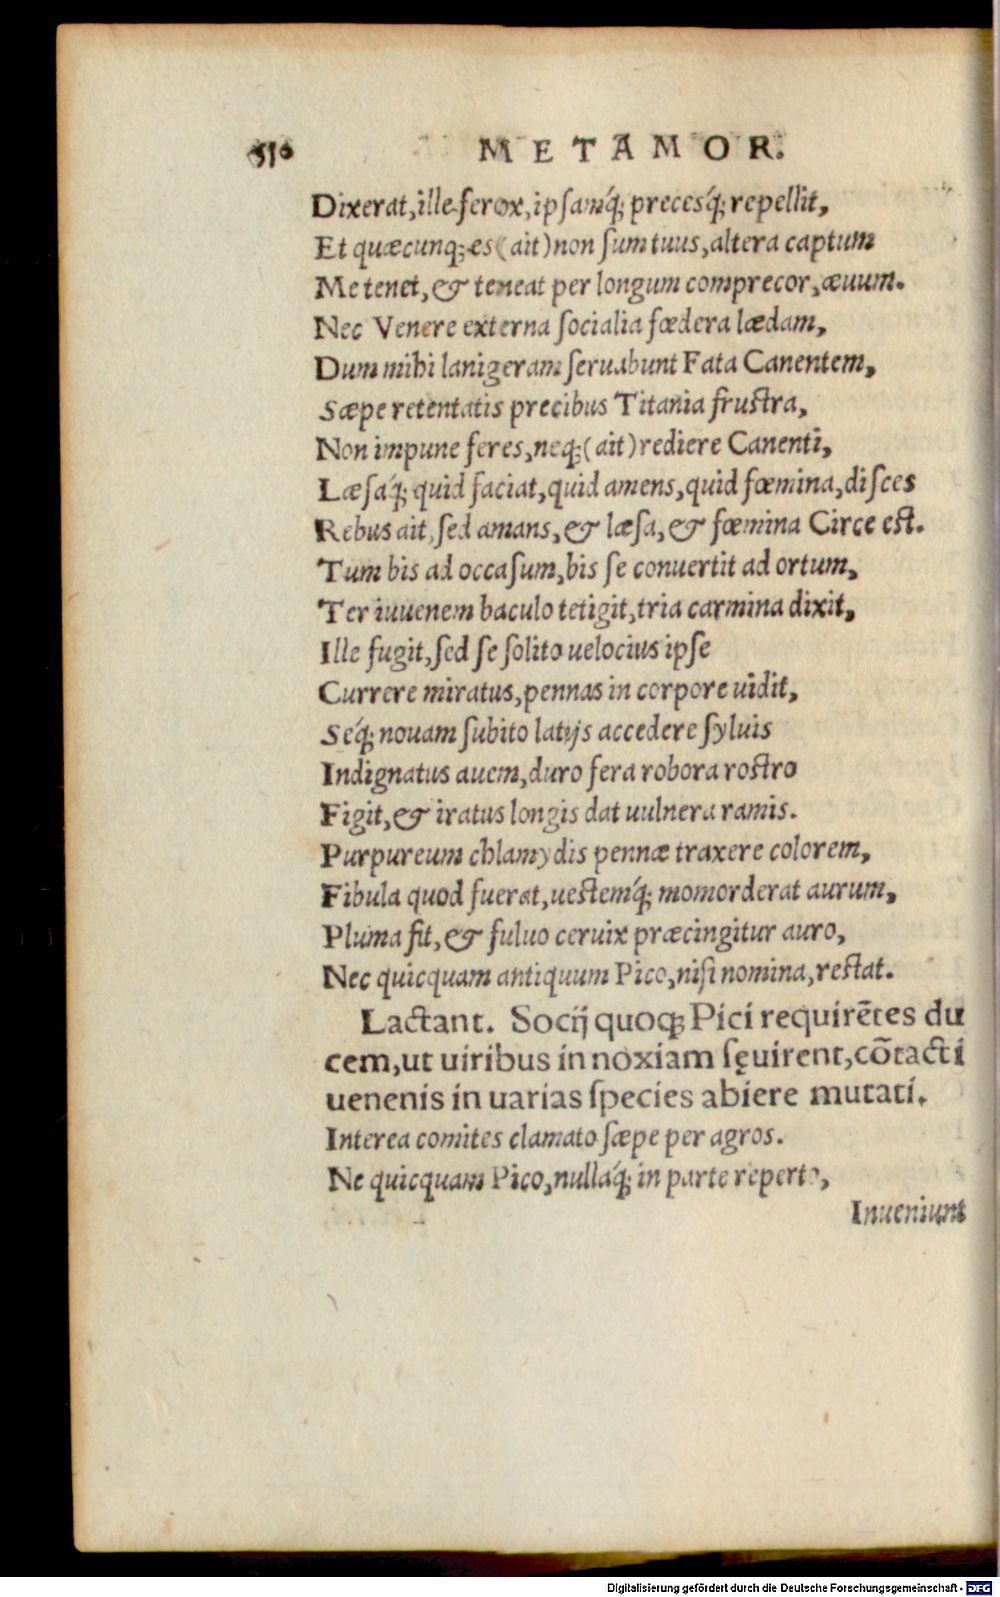 510 METAMOR.
Dixerat, ille ferox, ipsamq́; precesq́; repellit,
Et quæcunq; es (ait) non sum tuus, altera captum
Me tenet, & teneat per longum comprecor, æuum.
Nec Venere externa socialia fœdera lædam,
Dum mihi lanigeram seruabunt Fata Canentem,
Sæpe retentatis precibus Titania frustra,
Non impune feres, neq; (ait) rediere Canenti,
Læsaq́; quid faciat, quid amens, quid fœmina, disces
Rebus ait, sed amans, & læsa, & fœmina Circe est.
Tum bis ad occasum, bis se conuertit ad ortum,
Ter iuuenem baculo tetigit, tria carmina dixit,
Ille fugit, sed se solito uelocius ipse
Currere miratus, pennas in corpore uidit,
Seq́; nouam subito latijs accedere syluis
Indignatus auem, duro fera robora rostro
Figit, & iratus longis dat uulnera ramis.
Purpureum chlamydis pennæ traxere colorem,
Fibula quod fuerat, uestemq́; momorderat aurum,
Pluma fit, & fuluo ceruix præcingitur auro,
Nec quicquam antiquum Pico, nisi nomina, restat.
Lactant. Socij quoq; Pici requirẽtes du
cem, ut uiribus in noxiam sęuirent, cõtacti
uenenis in uarias species abiere mutati.
Interea comites clamato sæpe per agros.
Ne quicquam Pico, nullaq́; in parte reperto,
Inueniunt
Digitalisierung gefördert durch die Deutsche Forschungsgemeinschaft - DFG